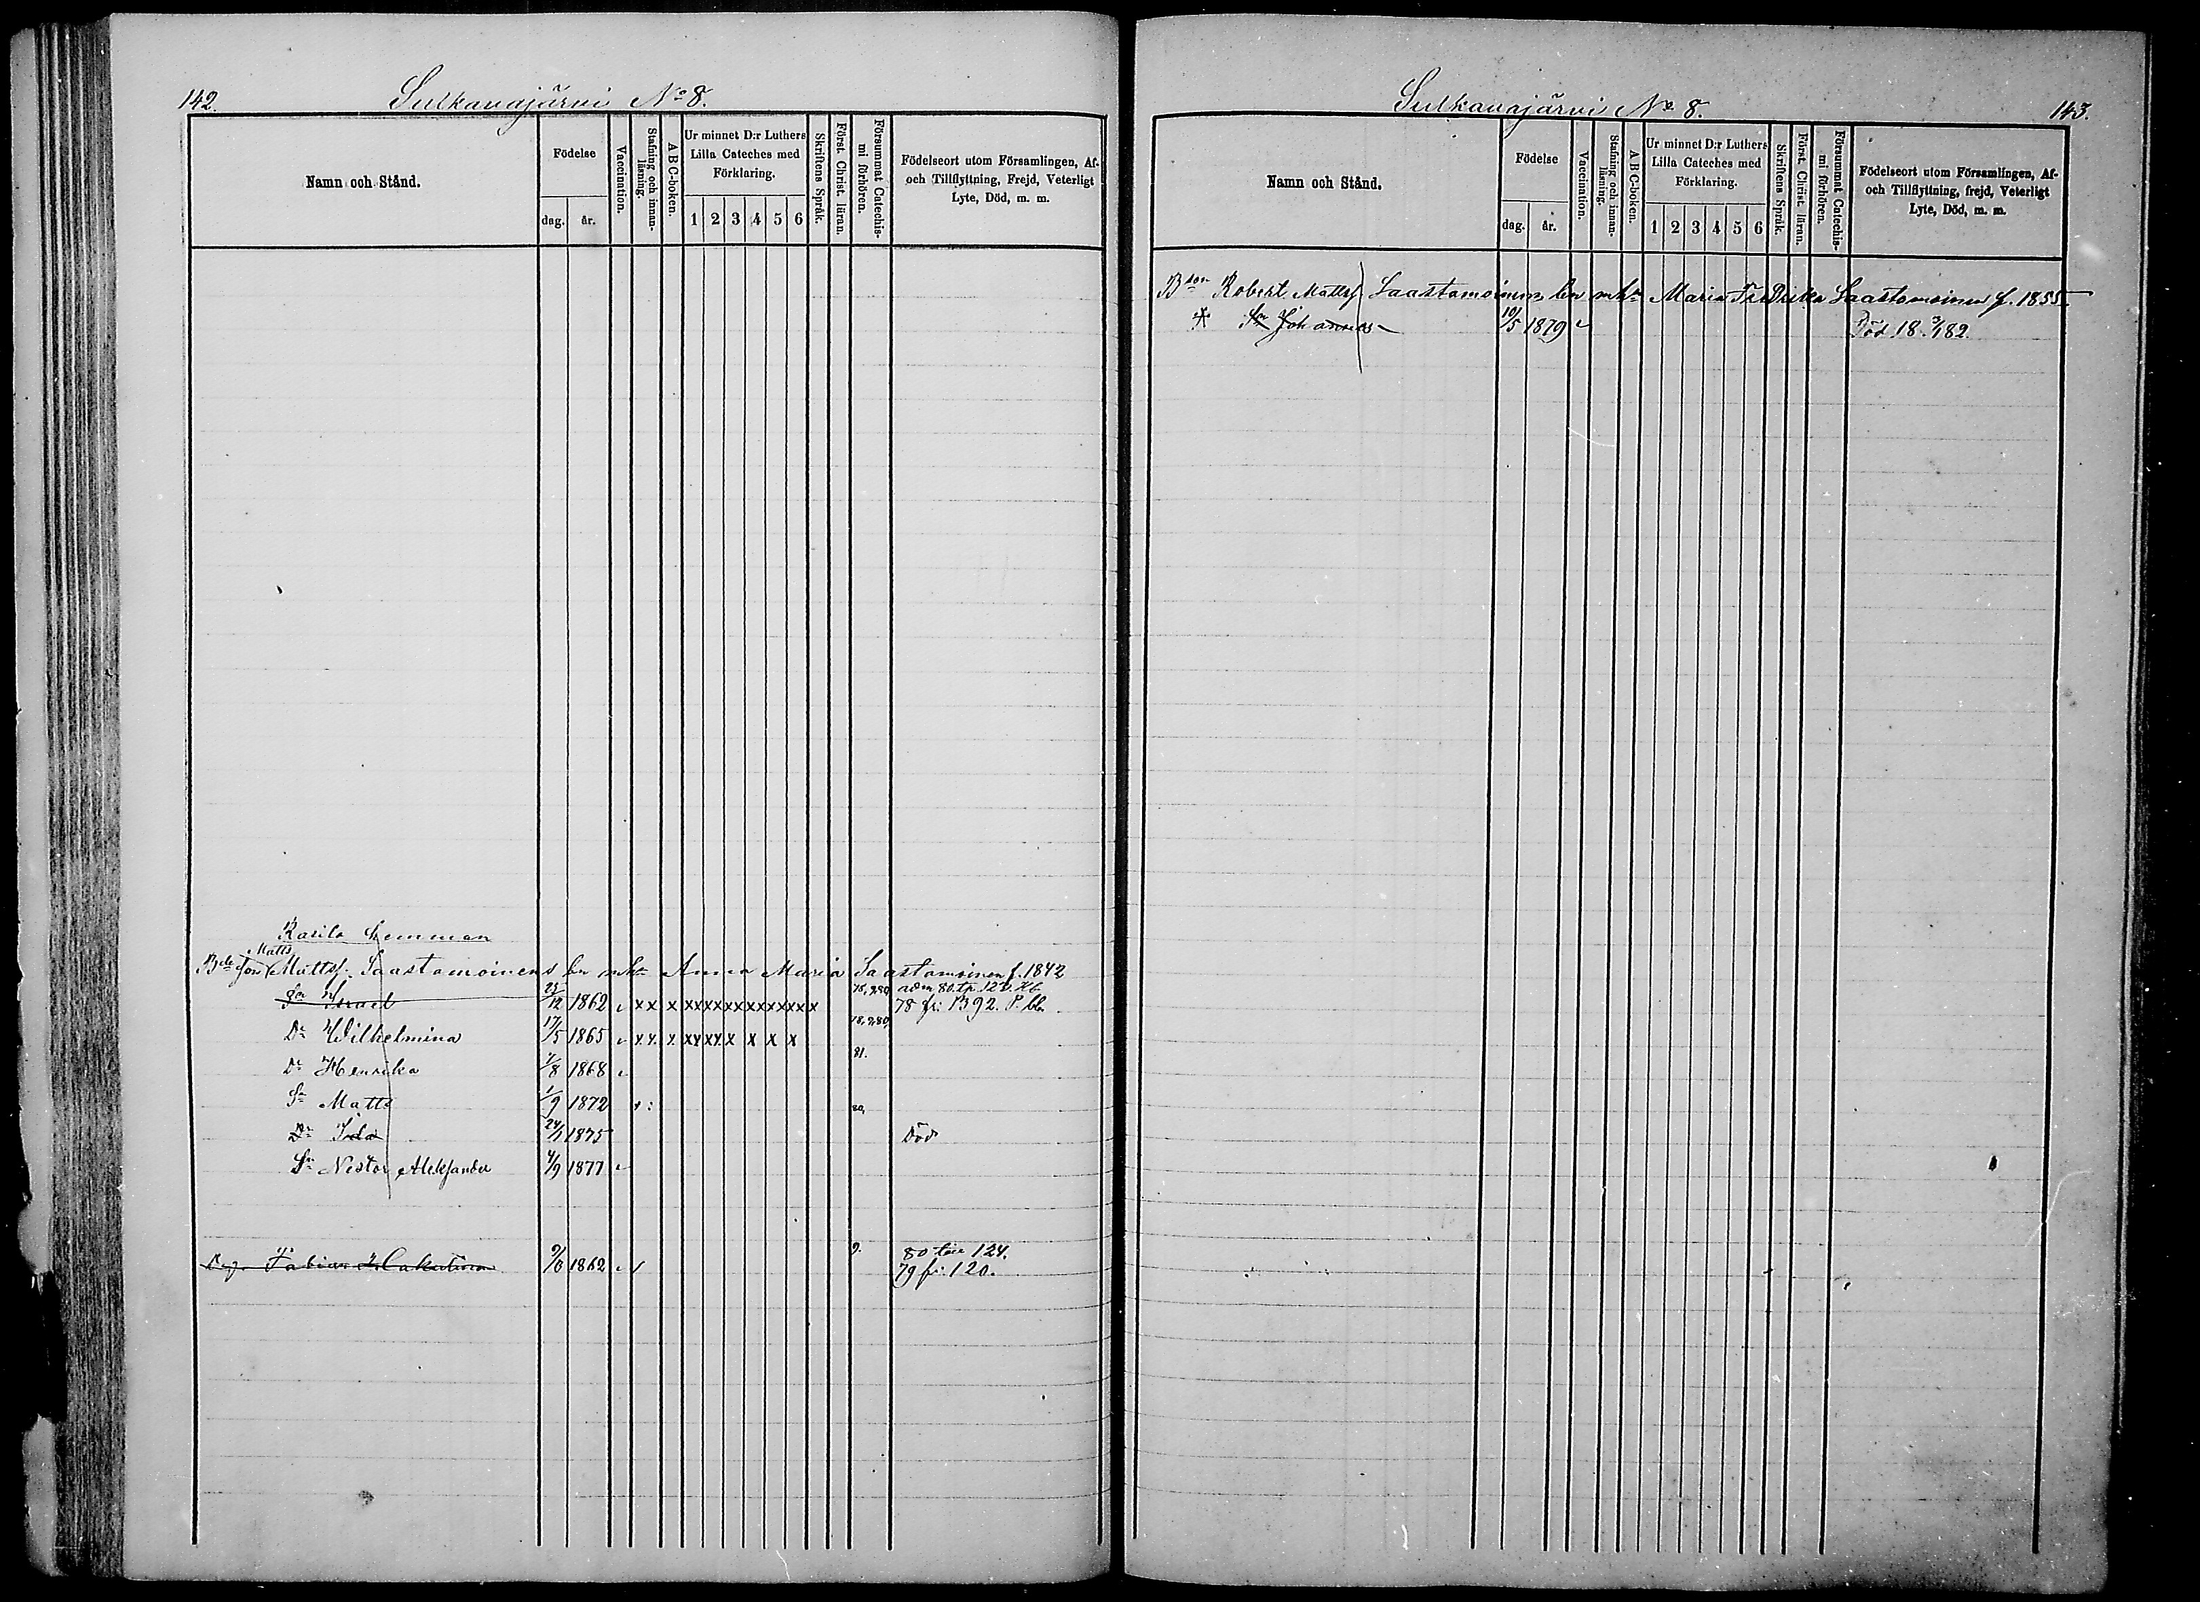 142.
Sulkavajärvi No 8.
Namn och Stånd.
Födelse
dag. år.
Vaccination.
Stafning och innan-läsning.
A B C-boken.
Ur minnet D:r Luthers Lilla Cateches med Förklaring.
1 2 3 4 5 6
Skriftens Språk.
Först. Christ. läran.
Försummat Catechis-mi förhören.
Födelseort utom Församlingen, Af-
och Tillflyttning, Frejd, Veterligt
Lyte, Död, m. m.
Matts
Mattss. Saastamoinens bn Anna Maria Saastamoinen f. 1842
Sn Israel 25/12 1862 x x x x x x x x x x x x x x 78 fr. B 92.
Dr Wilhelmina 17/5 1865 x x x x x x x x x x x 78,9,80,
Dr Henrika 1/8 1868 81.
Sn Matts 1/9 1872 80,
Dr Ida 24/1 1875 Död
Sn Nestor Aleksander 4/9 1877
9. 80 124.
Fabian 9/6 1862 79 fr. 120.
Sulkavajärvi No 8.
143.
Namn och Stånd.
Födelse
dag. år.
Vaccination.
Stafning och innan-läsning.
A B C-boken.
Ur minnet D:r Luthers Lilla Cateches med Förklaring.
1 2 3 4 5 6
Skriftens Språk.
Först. Christ. läran.
Försummat Catechis-mi förhören.
Födelseort utom Församlingen, Af-
och Tillflyttning, frejd, Veterligt
Lyte, Död, m. m.
Robert Mattss. Saastamoinens bn Maria Saastamoinen f. 1855
Sn Johannes 10/5 1879 Död 18 3/1 82.